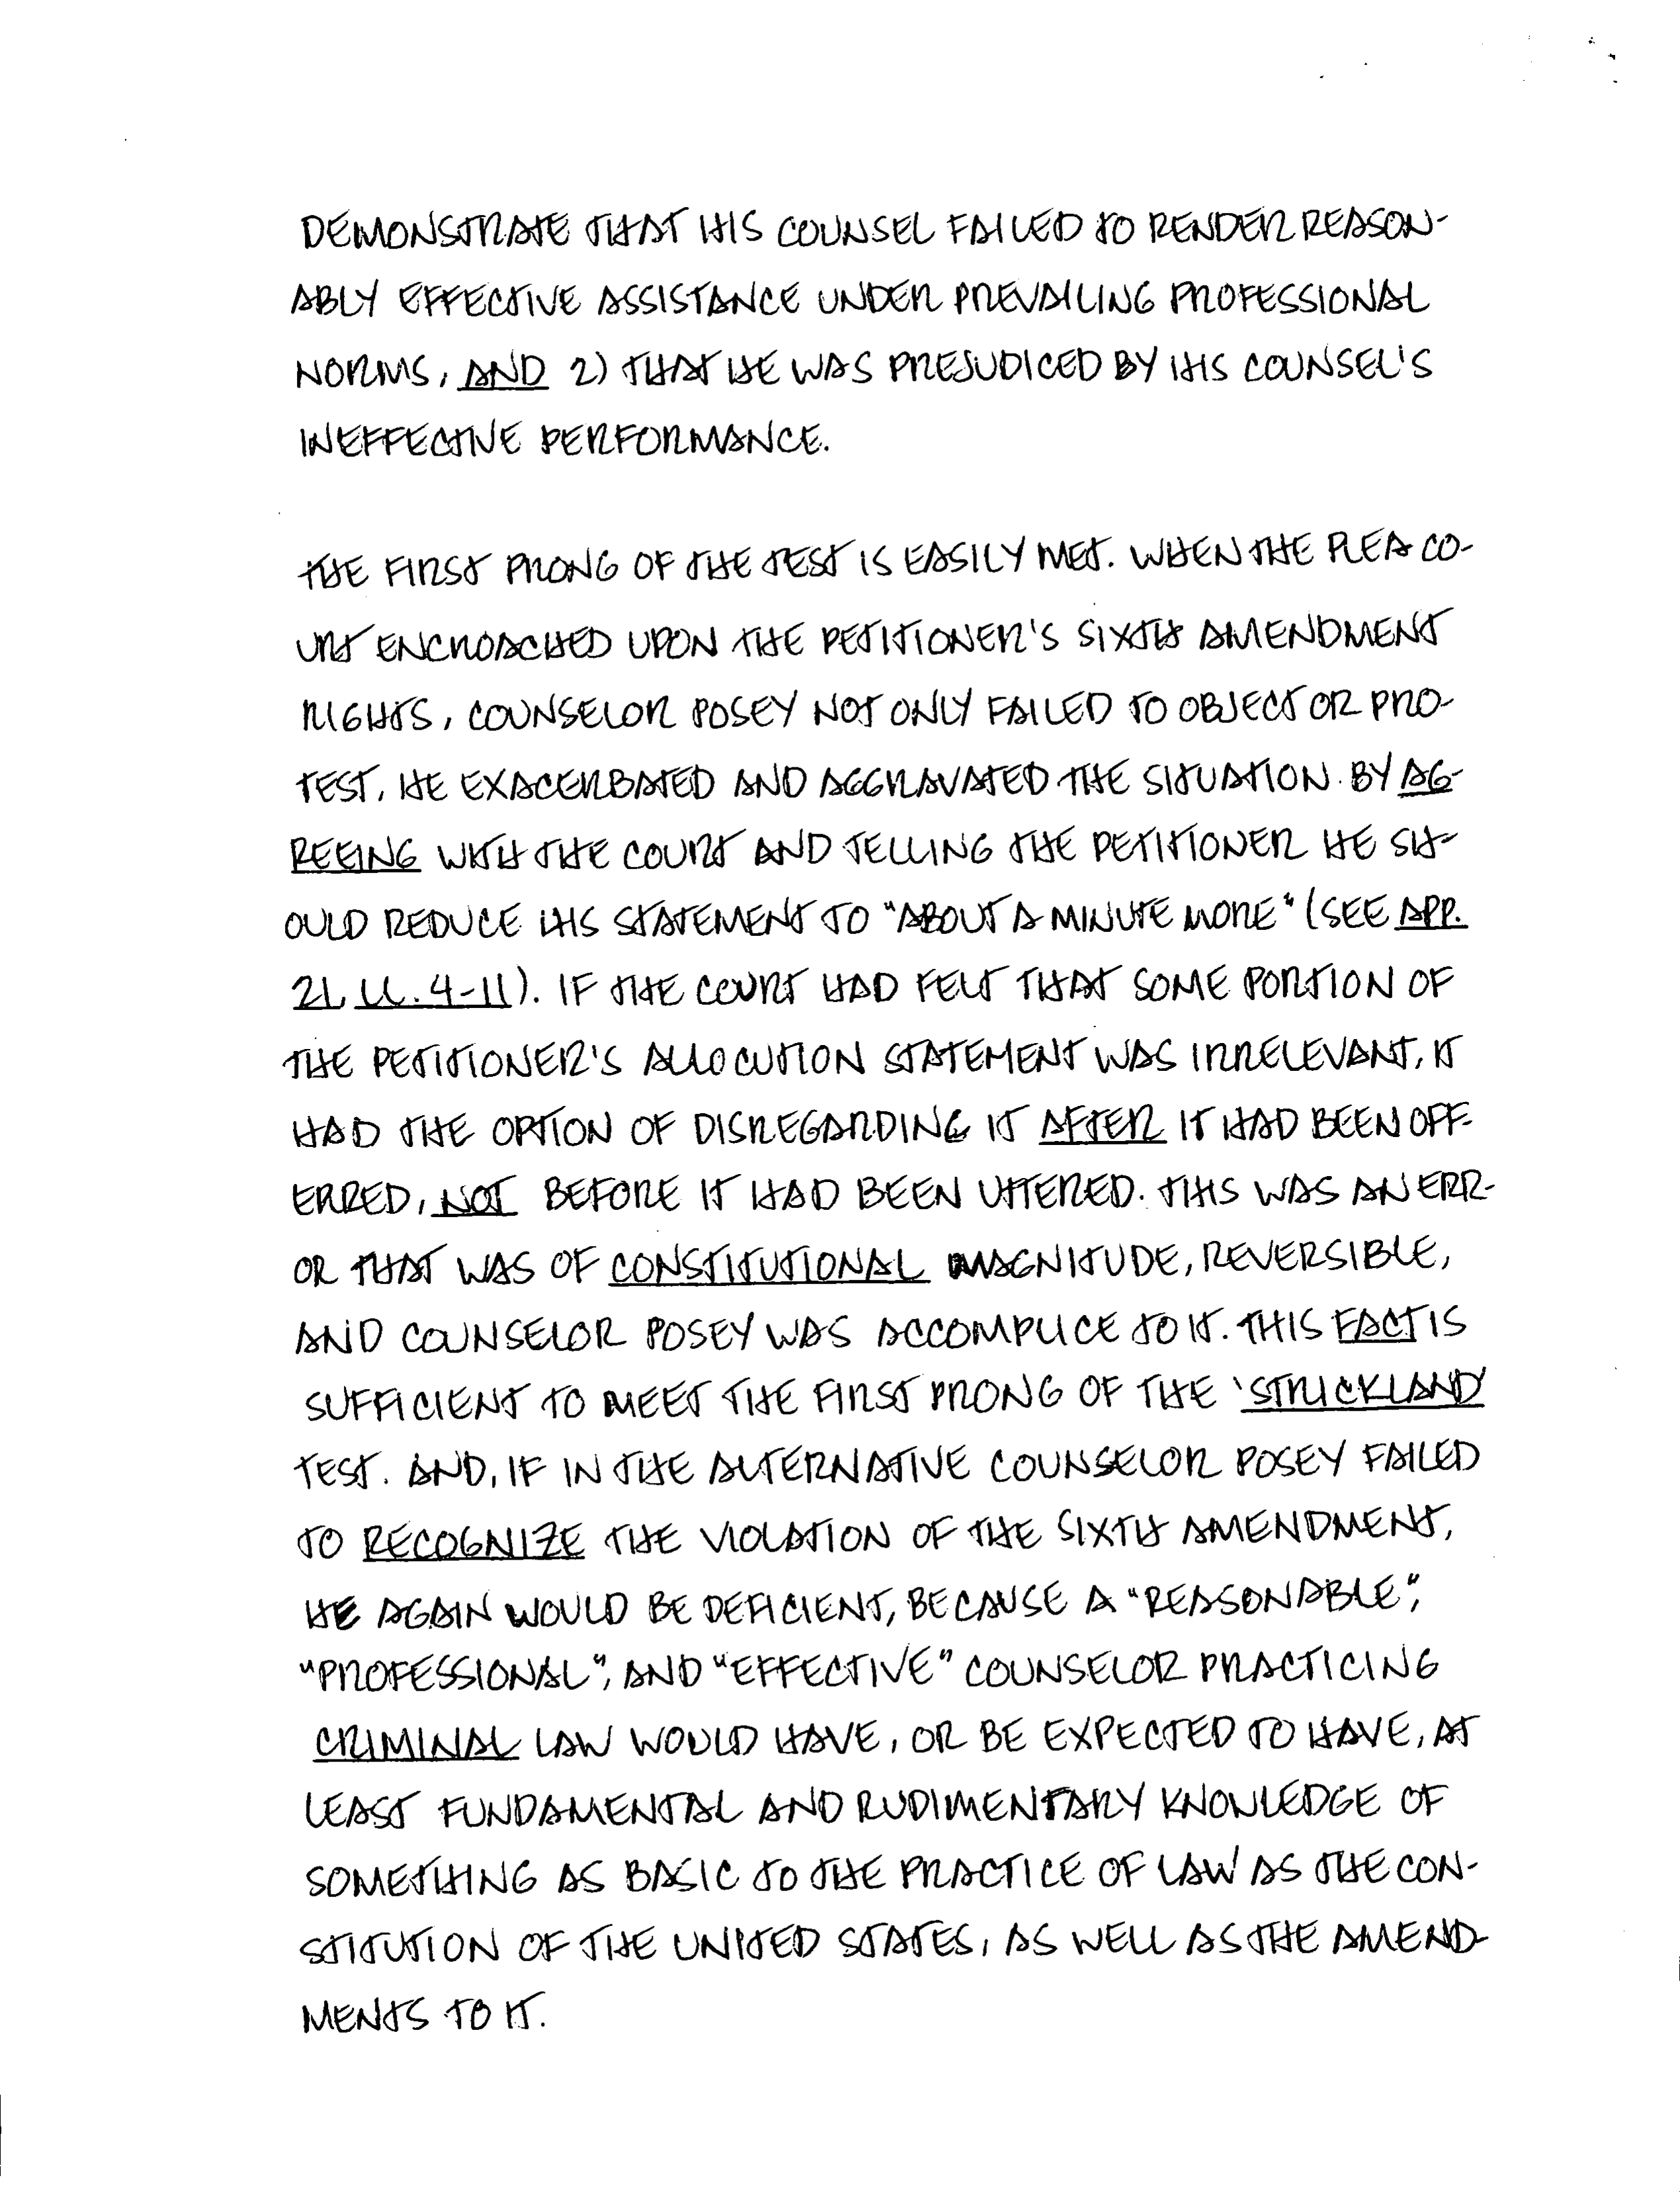 DEMONSTRATE THAT HIS COUNSEL FAILED TO RENDER REASON-
ABLY EFFECTIVE ASSISTANCE UNDER PREVAILING PROFESSIONAL
NORMS, AND 2) THAT HE WAS PREJUDICED BY HIS COUNSEL'S
INEFFECTIVE PERFORMANCE.
THE FIRST PRONG OF THE TEST IS EASILY MET. WHEN THE PLEA CO-
URT ENCROACHED UPON THE PETITIONER'S SIXTH AMENDMENT
RIGHTS, COUNSELOR POSEY NOT ONLY FAILED TO OBJECT OR PRO-
TEST, HE EXACERBATED AND AGGRAVATED THE SITUATION BY AG-
REEING WITH THE COURT AND TELLING THE PETITIONER HE SH-
OULD REDUCE HIS STATEMENT TO "ABOUT A MINUTE MORE" (SEE APP.
21, LL. 4-11). IF THE COURT HAD FELT THAT SOME PORTION OF
THE PETITIONER'S ALLOCUTION STATEMENT WAS IRRELEVANT, IT
HAD THE OPTION OF DISREGARDING IT AFTER IT HAD BEEN OFF-
ERRED, NOT BEFORE IT HAD BEEN UTTERED. THIS WAS AN ERR-
OR THAT WAS OF CONSTITUTIONAL MAGNITUDE, REVERSIBLE,
AND COUNSELOR POSEY WAS ACCOMPLICE TO IT. THIS FACT IS
SUFFICIENT TO MEET THE FIRST PRONG OF THE 'STRICKLAND'
TEST. AND, IF IN THE ALTERNATIVE COUNSELOR POSEY FAILED
TO RECOGNIZE THE VIOLATION OF THE SIXTH AMENDMENT,
HE AGAIN WOULD BE DEFICIENT, BECAUSE A "REASONABLE",
"PROFESSIONAL", AND "EFFECTIVE" COUNSELOR PRACTICING
CRIMINAL LAW WOULD HAVE, OR BE EXPECTED TO HAVE, AT
LEAST FUNDAMENTAL AND RUDIMENTARY KNOWLEDGE OF
SOMETHING AS BASIC TO THE PRACTICE OF LAW AS THE CON-
STITUTION OF THE UNITED STATES, AS WELL AS THE AMEND-
MENTS TO IT.